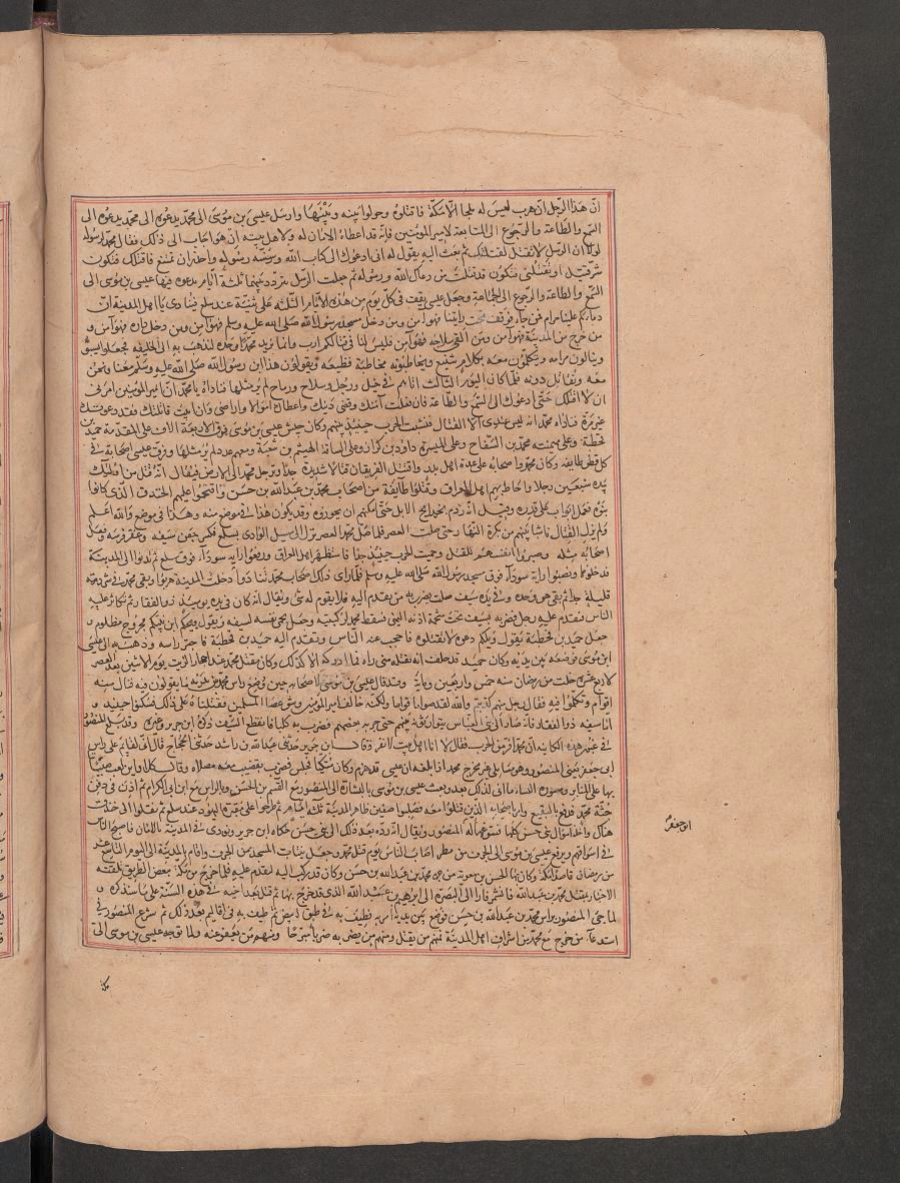 ان هذا الرجل ان هرب فليس له ملجا الا مكة فاقتلوه وحولوا بينه وبينها وارسل عيسى بن موسى الى محمد يدعوه الى
السمع والطاعة والرجوع الى المتابعة لامير المومنين فانه قد اعطاه الامان له ولاهل بيته ان هو اجاب الى ذلك فقال محمد لرسوله
لولا ان الرسل لا تقتل لقتلتك ثم بعث اليه يقول له انى ادعوك الى كتاب الله وسنة رسوله واحذر ان تمتنع فاقتلك فتكون
شر قتيل او تقتلنى فتكون قد قتلت من دعاك الى الله ورسوله ثم جعلت الرسل تتردد بينهما ثلثة ايام يدعوه فيها عيسى بن موسى الى
السمع والطاعة والرجوع الى الجماعة وجعل عيسى يقف فى كل يوم من هذه الايام الثلثة على ثنية عند سلع ينادى يا اهل المدينة ان
دماءكم علينا حرام فمن جاء فوقف تحت رايتنا فهو امن ومن دخل مسجد رسول الله صلى الله عليه وسلم فهو امن ومن دخل داره فهو امن و
من خرج من المدينة فهو امن ومن القى سلاحه فهو امن فليس لنا فى قتالكم ارب وانما نريد محمدا وحده لنذهب به الى الخليفة فجعلوا يسبونه
وينالون من امه ويتكلمون معه بكلام شنيع ويخاطبونه مخاطبة فظيعة ويقولون هذا ابن رسول الله صلى الله عليه وسلم معنا ونحن
معه ونقاتل دونه فلما كان اليوم الثالث اتاهم فى خيل ورجل وسلاح ورماح لم ير مثلها فناداه يا محمد ان امير المومنين امرنى
ان لا اقاتلك حتى ادعوك الى السمع والطاعة فان فعلت آمنك وقضى دينك واعطاك اموالا واراضى وان ابيت قاتلتك فقد دعوتك
غير مرة فناداه محمد انه ليس عندى الا القتال فنشبت الحرب حينئذ بينهم وكان جيش عيسى بن موسى فوق الاربعة الاف على المقدمة حميد بن
قحطبة وعلى ميمنته محمد بن السفاح وعلى الميسرة داود بن كراز وعلى الساقة الهيثم بن شعبة ومعهم عدد لم ير مثلها وفرق عيسى اصحابه فى
كل قطر طايفة وكان محمد واصحابه على عدة اهل بدر واقتتل الفريقان قتالا شديدا جدا وترجل محمد الى الارض فيقال انه قتل من اوليك
بيده سبعين رجلا واحاط بهم اهل العراق وقتلوا طايفة من اصحاب محمد بن عبد الله بن حسن واقتحموا عليهم الخندق الذى كانوا
حفروه فعملوا ابواب على قدره وقيل انه ردم بحدايج الابل حتى امكنهم ان يجوزوه وقد يكون هذا فى موضع منه وهكذا فى موضع والله اعلم
ولم يزل القتال ناشبا بينهم من بكرة النهار حتى صليت العصر فلما صلى محمد العصر نزل الى مسيل الوادى بسلع فكسر جفن سيفه وعقر فرسه وفعل
اصحابه مثله وصبروا انفسهم للقتل وحميت الحرب حينئذ جدا فاستظهر اهل العراق ورفعوا راية سوداء فوق سلع ثم دنوا الى المدينة
فدخلوها ونصبوا راية سوداء فوق مسجد رسول الله صلى الله عليه وسلم فلما راى ذلك اصحاب محمد تنادوا دخلت المدينة وهربوا وبقى محمد فى شرذمة
قليلة جدا ثم بقى هو وحده وفى يده سيف صلت يضرب به من تقدم اليه فلا يقوم له شى ويقال انه كان فى يده يوميذ ذو الفقار ثم تكاثر عليه
الناس فتقدم عليه رجل فضربه بسيفه تحت شحمة اذنه اليمنى فسقط محمد لركبتيه وجعل يحمى نفسه بسيفه ويقول ويحكم ابن نبيكم مجروح مظلوم و
جعل حميد بن قحطبة يقول ويلكم دعوه لا تقتلوه فاحجم عنه الناس وتقدم اليه حميد بن قحطبة فاحتز راسه وذهب به الى عيسى
ابن موسى فوضعه بين يديه وكان حميد قد حلف انه يقتله متى راه فما ادركه الا كذلك وكان مقتل محمد عند احجار الزيت يوم الاثنين بعد العصر
لاربع عشرة خلت من رمضان سنة خمس واربعين وماية وقد قال عيسى بن موسى لاصحابه حين وضع راس محمد بين يديه ما تقولون فيه فنال منه
اقوام وتكلموا فيه فقال رجل منهم كذبتم والله لقد صواما قواما ولكنه خالف امير المومنين وشق عصا المسلمين فقتلناه على ذلك فسكتوا حينيذ و
اما سيفه ذو الفقار فانه صار الى بنى العباس يتوارثونه بينهم حتى جربه بعضهم فضرب به كلبا فانقطع السيف ذكره ابن جرير وغيره وقد بلغ المنصور
فى غبون هذه الكاينة ان محمدا فر من الحرب فقال لا انا اهل بيت لا نفر قال ابن جرير حدثنى عبد الله بن راشد حدثنى الحجاج قال انى لقايم على راس
ابى جعفر يعنى المنصور وهو يسايلنى عن مخرج محمد اذ بلغه ان عيسى قد هزم وكان متكيا فجلس فضرب بقضيب معه مصلاه وقال كلا واين لعب صبياننا
بها على المنابر ومشورة النساء ما انى لذلك بعد وبعث عيسى بن موسى بالبشارة الى المنصور مع القسم بن الحسن وبالراس مع ابن ابى الكرام ثم اذن فى دفن
جثة محمد فدفن بالبقيع وامر باصحابه الذين قتلوا معه فصلبوا صفين ظاهر المدينة ثلثة ايام ثم طرحوا على مقبرة اليهود عند سلع ثم نقلوا الى خندق
هناك واخذ اموال بنى حسن كلها فسوغها له المنصور ويقال انه رد بعد ذلك الى بنى حسن حكاه ابن جرير ونودى فى المدينة بالامان فاصبح الناس
فى اسواقهم وترفع عيسى بن موسى الى الجرف من مطر اصاب الناس يوم قتل محمد وجعل ينتاب المسجد من الجرف واقام بالمدينة الى اليوم التاسع عشر
من رمضان قاصدا مكة وكان بها الحسن بن معوية من جهة محمد بن عبد الله بن حسن وكان قد كتب اليه ليقدم عليه فلما خرج من مكة ببعض الطريق تلقته
الاخبار بقتل محمد بن عبد الله فاستمر فارا الى البصرة الى ابرهيم بن عبد الله الذى قد خرج بها ثم قتل بعد اخيه فى هذه السنة على ما سنذكره و
لما جى المنصور براس محمد بن عبد الله بن حسن فوضع بين يديه امر به فطيف به فى طبق ابيض ثم طيف به فى اقاليم بعد ذلك ثم شرع المنصور فى
استدعاء من خرج مع محمد من اشراف اهل المدينة فمنهم من يقتل ومنهم من يضربه ضربا مبرحا ومنهم من يعفو عنه ولما توجه عيسى بن موسى الى
مكة